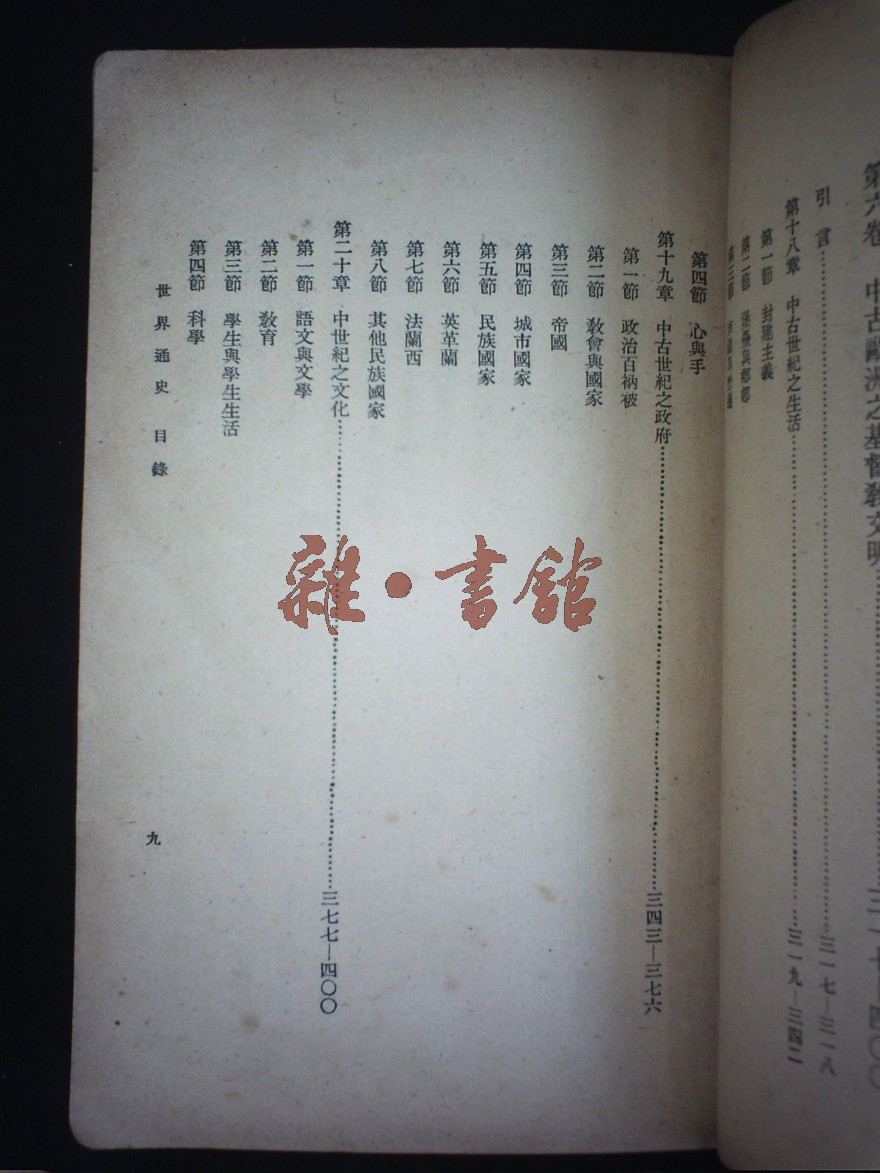 第六卷 中古歐洲之基督教文明……三一七—四〇〇
引言……三一七—三一八
第十八章 中古世紀之生活……三一九—三四二
第一節 封建主義
第二節
第三節
第四節 心與手
第十九章 中古世紀之政府……三四三—三七六
第一節 政治百衲被
第二節 教會與國家
第三節 帝國
第四節 城市國家
第五節 民族國家
第六節 英革蘭
第七節 法蘭西
第八節 其他民族國家
第二十章 中世紀之文化……三七七—四〇〇
第一節 語文與文學
第二節 教育
第三節 學生與學生生活
第四節 科學
世界通史 目錄
九
雜·書館